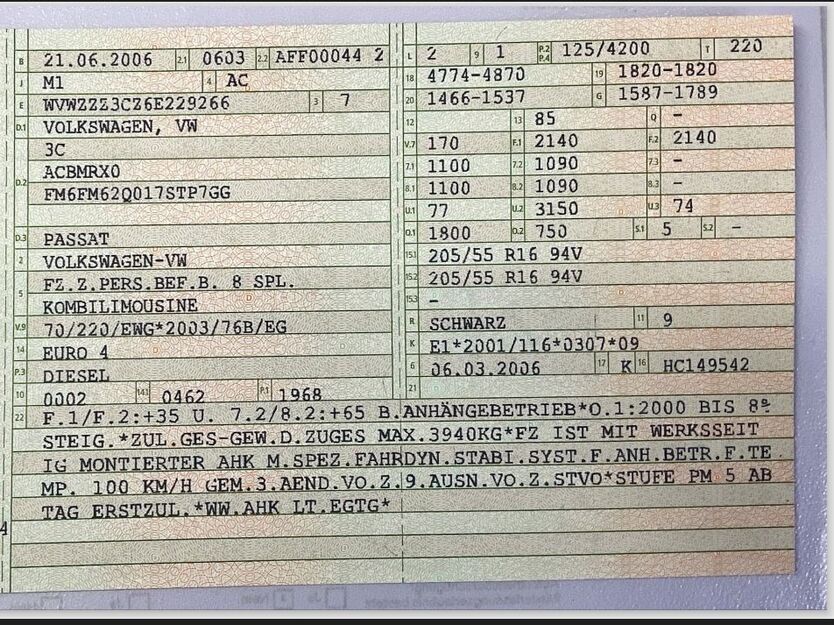 B 21.06.2006 2.1 0603 2.2 AFF00044 2
J M1 4 AC
E WVWZZZ3CZ6E229266 3 7
D.1 VOLKSWAGEN, VW
3C
ACBMRX0
D.2 FM6FM62Q017STP7GG
D.3 PASSAT
2 VOLKSWAGEN-VW
5 FZ.Z.PERS.BEF.B. 8 SPL.
KOMBILIMOUSINE
V.9 70/220/EWG*2003/76B/EG
14 EURO 4
P.3 DIESEL
10 0002 14.1 0462 P.1 1968
L 2 9 1 P.2 P.4 125/4200 T 220
18 4774-4870 19 1820-1820
20 1466-1537 G 1587-1789
12 13 85 Q -
V.7 170 F.1 2140 F.2 2140
7.1 1100 7.2 1090 7.3 -
8.1 1100 8.2 1090 8.3 -
U.1 77 U.2 3150 U.3 74
O.1 1800 O.2 750 S.1 5 S.2 -
15.1 205/55 R16 94V
15.2 205/55 R16 94V
15.3 -
R SCHWARZ 11 9
K E1*2001/116*0307*09
6 06.03.2006 17 K 16 HC149542
21
22 F.1/F.2:+35 U. 7.2/8.2:+65 B.ANHÄNGEBETRIEB*O.1:2000 BIS 8%
STEIG.*ZUL.GES-GEW.D.ZUGES MAX.3940KG*FZ IST MIT WERKSSEIT
IG MONTIERTER AHK M.SPEZ.FAHRDYN.STABI.SYST.F.ANH.BETR.F.TE
MP. 100 KM/H GEM.3.AEND.VO.Z.9.AUSN.VO.Z.STVO*STUFE PM 5 AB
TAG ERSTZUL.*WW.AHK LT.EGTG*
4